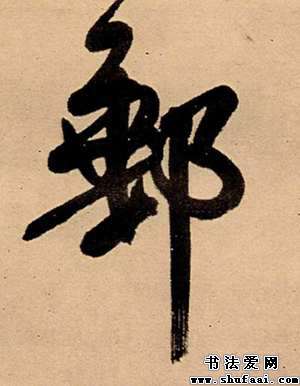 郵
书法爱网
www.shufaai.com